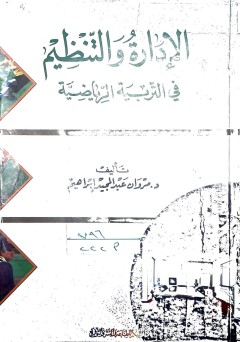 الإدارة والتنظيم
في التربية الرياضية
تأليف
د. مروان عبد المجيد إبراهيم
٧٩٦